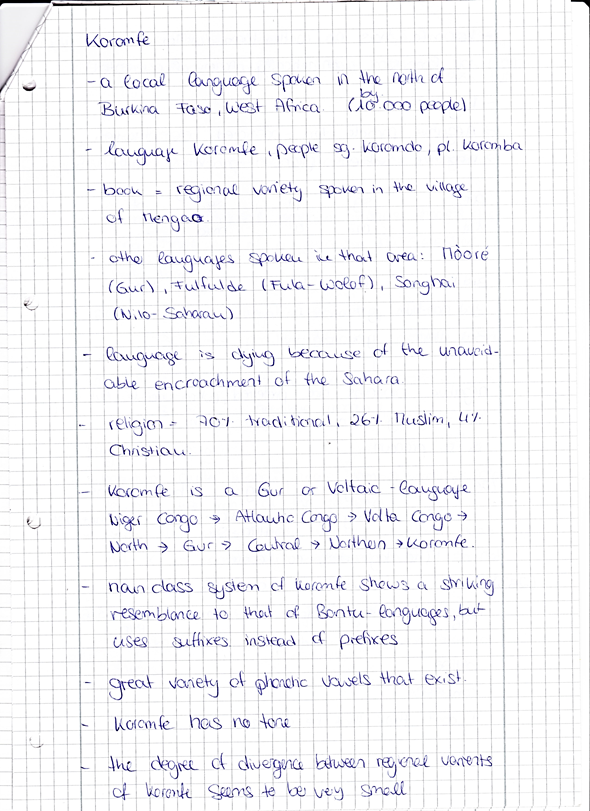 Koromfe
- a local language spoken in the north of
Burkina Faso, West Africa (by 10 000 people)
- language Koromfe, people sg. Koromdo, pl. Koromba
- book = regional variety spoken in the village
of Mengao
- othe languages spoken in that area: Mòoré
(Gur), Fulfulde (Fula-Wolof), Songhai
(Nilo-Saharan)
- language is dying because of the unavoid-
able encroachment of the Sahara
- religion = 70% traditional, 26% Muslim, 4%
Christian.
- Koromfe is a Gur or Voltaic-language
Niger Congo → Atlantic Congo → Volta Congo →
North → Gur → Central → Northern → Koromfe.
- noun class system of Koromfe shows a striking
resemblance to that of Bantu-languages, but
uses suffixes instead of prefixes
- great variety of phonetic vowels that exist.
- Koromfe has no tone
- the degree of divergence between regional varients
of Koromfe seems to be very small